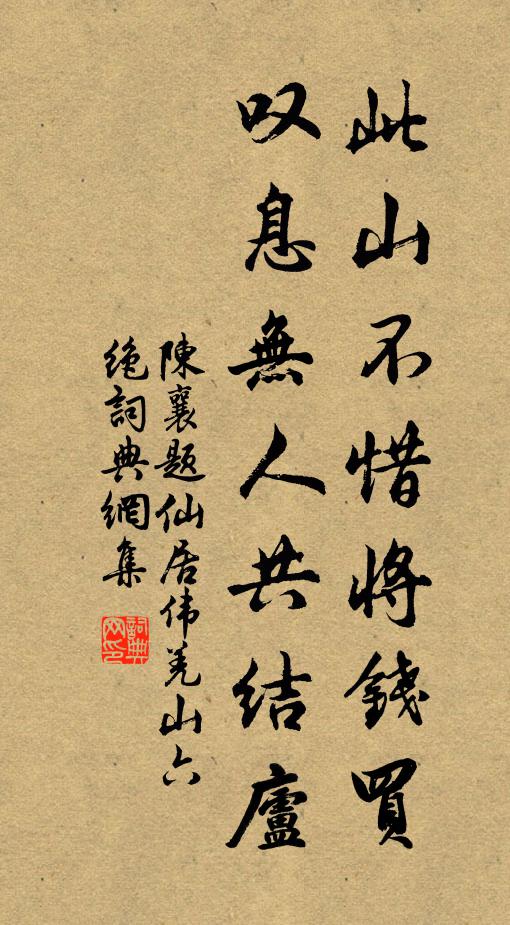 此山不惜將錢買
叹息無人共結廬
陳襄題仙居伟羌山六
绝詞典網集
詞典
网印